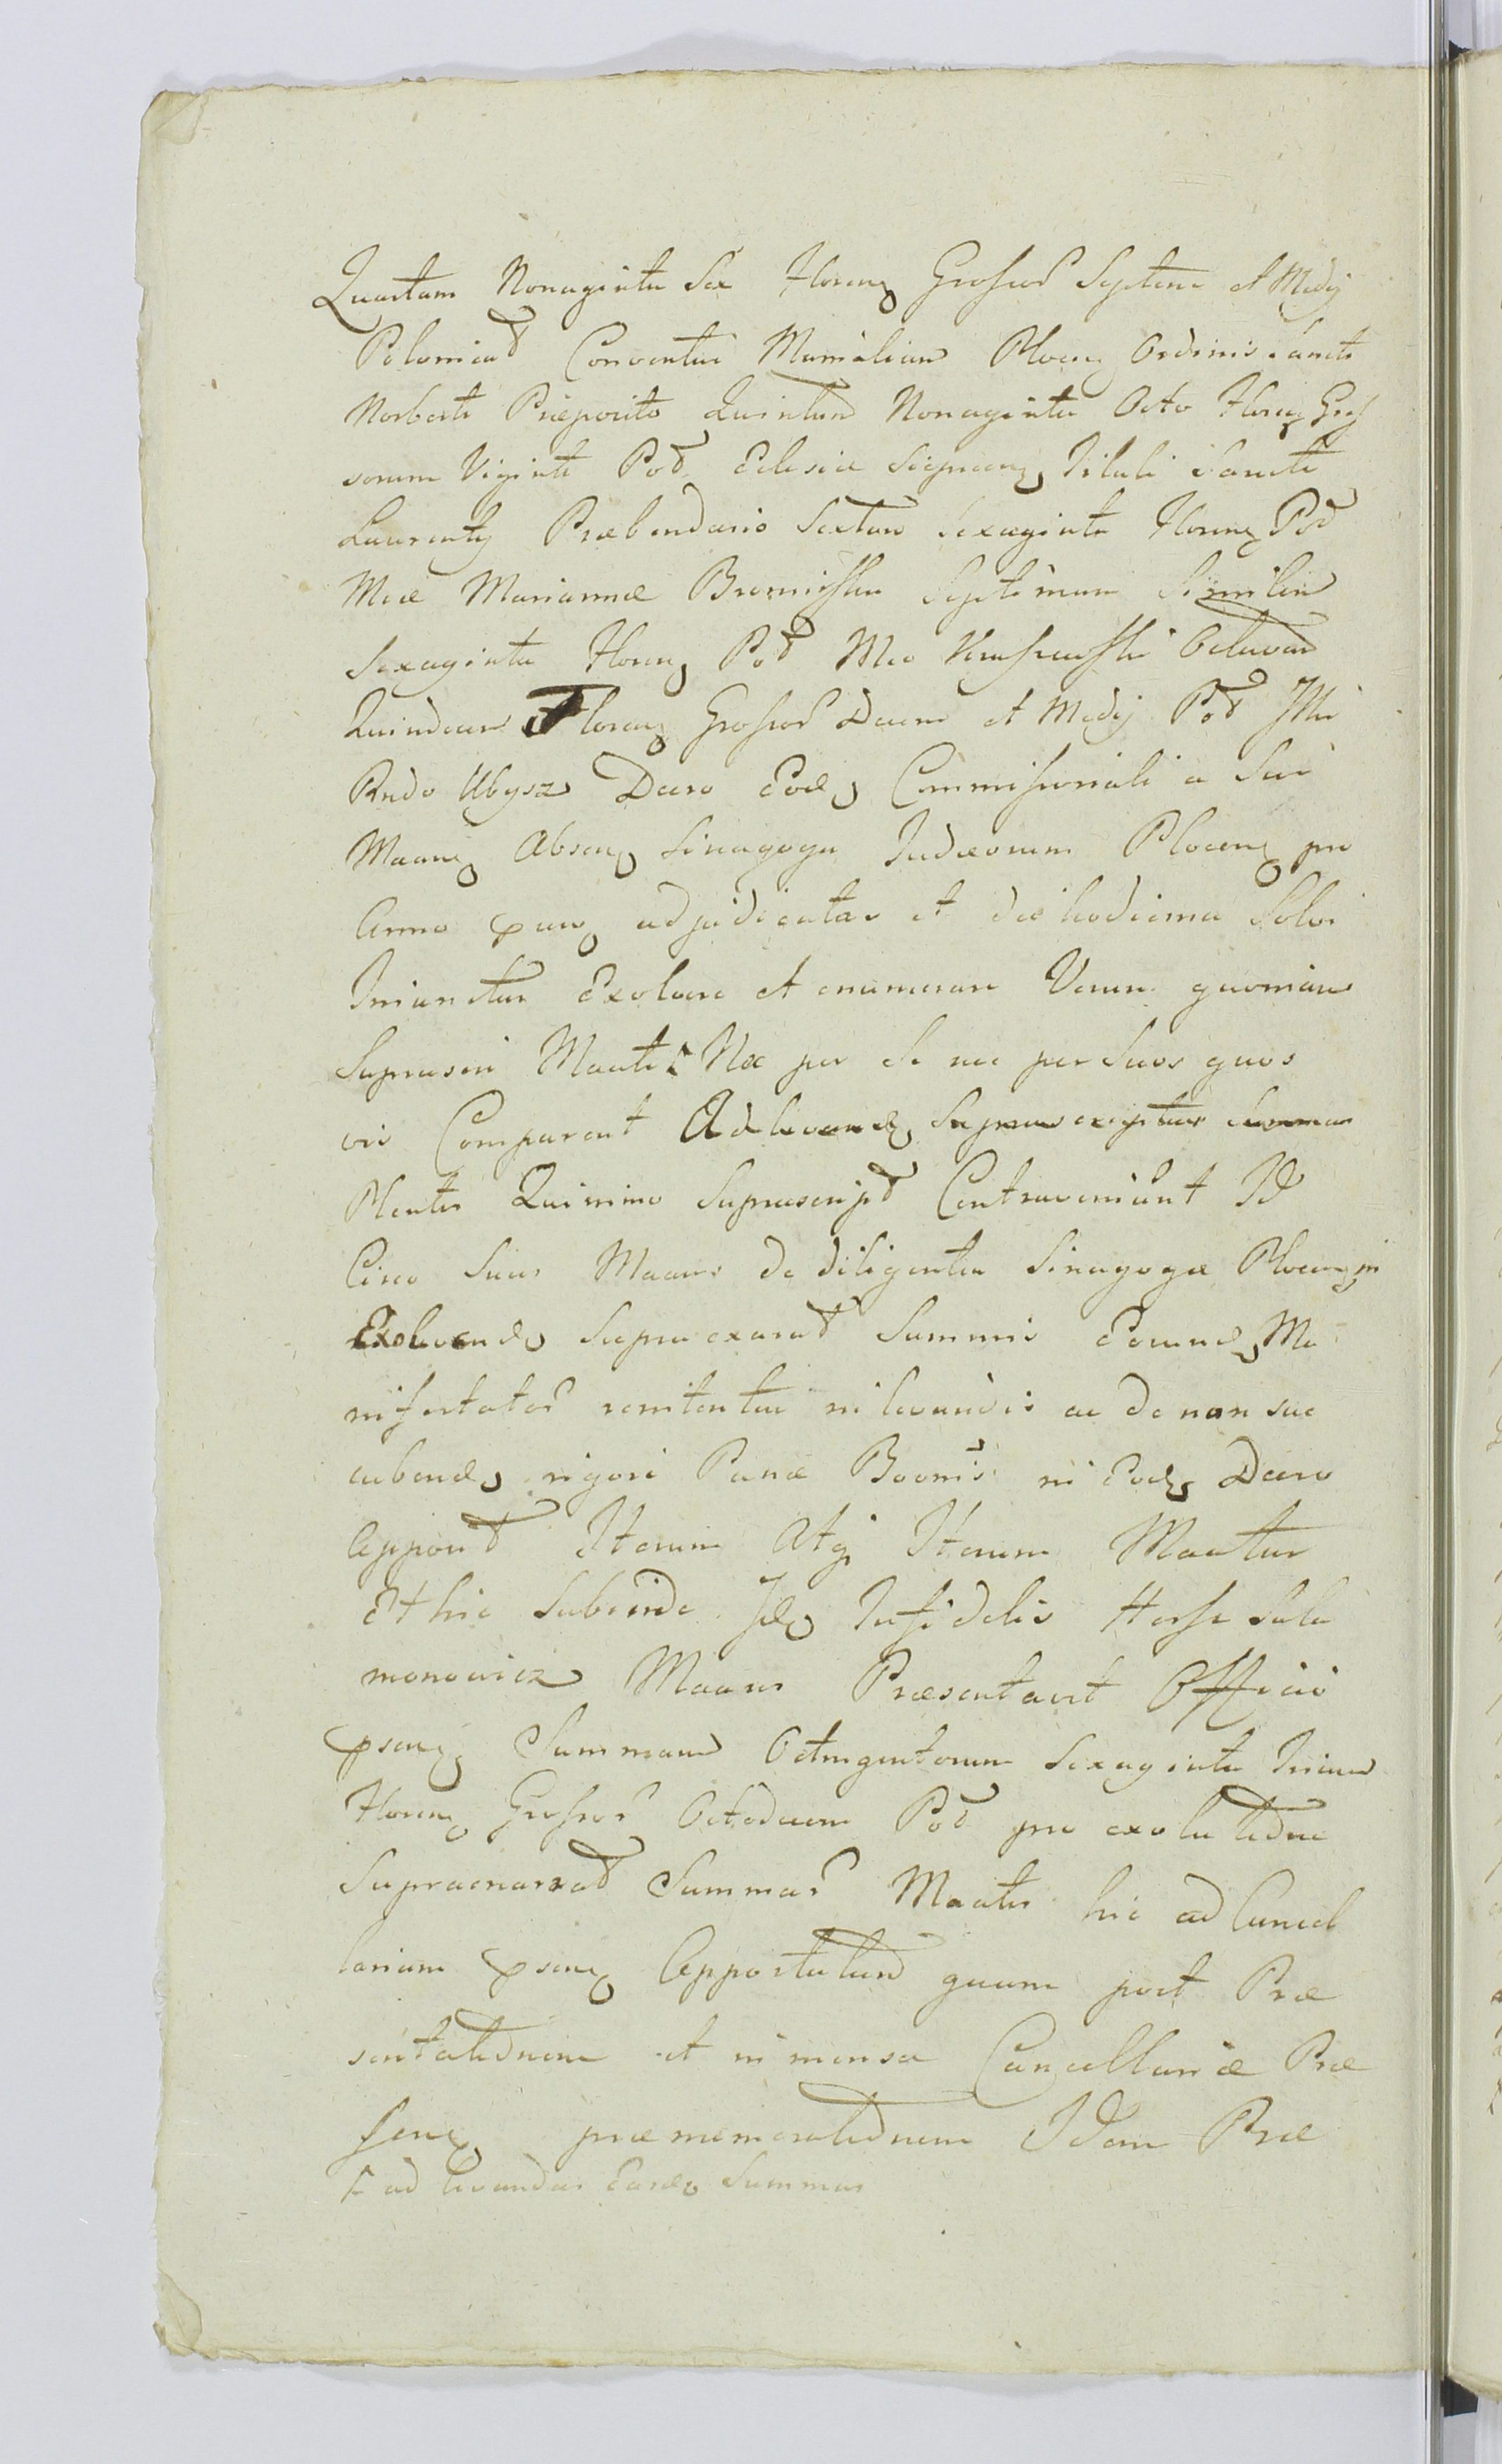 Quartam Nonaginta Sex Floren Grossor Septem et Medij
Polonical Conventui Monialium Plocen Ordinis Sancti
Norberti Præposito Quintam Nonaginta Octo Floren Gros
sorum Viginti Pol Eclesiæ Sieprcen Tituli Sancti
Laurentij Præbendario Sextam Sexaginta Floren Pol
Mcæ Mariannæ Bromirska Septimam Similem
Sexaginta Floren Pol Mco Octavam
Quindecim Floren Grossor Decem et Medij Pol Illri
Rndo Ubysz Decro Eod Commissoriali a Sui
Maane Absen Sinagoga Judæorum Plocen pro
Anno præn adjudicatas et die hodierna Solvi
Iniunctas Exolvere et enumerare Verum quoniam
Suprascri Maati Næ per Se nec per Suos quos
vis Comparent Ad levand Suprascriptas Summas
Maati Quinimo Suprascript Contraveniunt Id
Circo Suus Maans de diligentia Sinagogæ Plocen in
Exolvend Supraexarat Summis Eorund Ma
nifestator renitentia in levandis ac de non suc
cubend rigori Pænæ Bannis in Eod Decro
apposit Iterum Atq Iterum Maatur
Et hic Subinde Id Infidelis Hersz Salo
monowicz Maans Præsentavit Officio
præsen Summam Octingentorum Sexaginta Trium
Floren Grossor Octodecem Pol pro exolutione
Supraenarrat Summar Maatis hic ad Cancel
lariam præsen Apportatam quam post Præ
sentationem et in mensa Cancellariæ Præ
sen præmemorationem Idem Præ
ad levandas Easd Summas